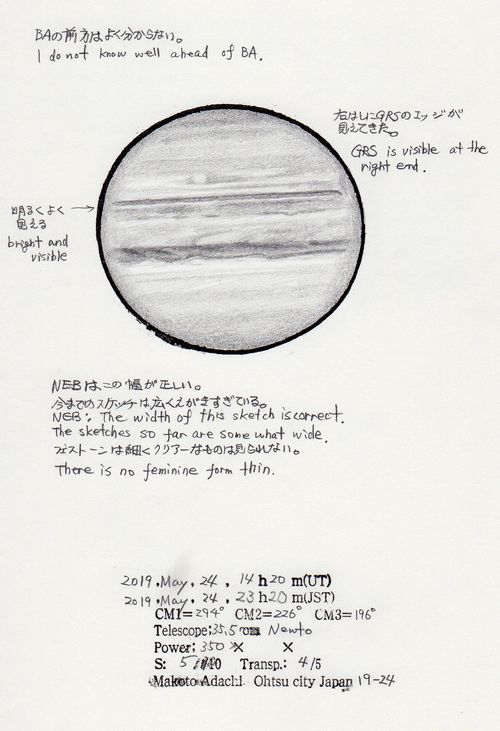 BAの前方はよく分からない。
I do not know well ahead of BA.
右はしにGRSのエッジが
見えてきた。
GRS is visible at the
right end.
明るくよく
見える
bright and
visible
NEBは、この幅が正しい。
今までのスケッチは広くえがきすぎている。
NEB: The width of this sketch is correct.
The sketches so far are some what wide.
フェストーンは細くクリアーなものは見られない。
There is no feminine form thin.
2019.May.24, 14h20m(UT)
2019.May.24, 23h20m(JST)
CM1=294° CM2=226° CM3=196°
Telescope:35.5cm Newto
Power:350× ×
S: 5/10 Transp.: 4/5
Makoto Adachi Ohtsu city Japan 19-24